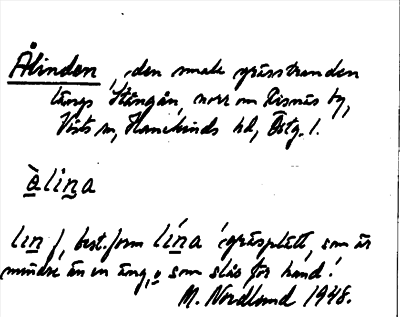 Ålinden, den smale grässtranden
längs Stångån, norr om Risnäs by,
Vists sn, Hanekinds hd, Östg. l.
àlina
lin f, best. form lína 'gräsplätt, som är
mindre än en äng, o som slås för hand'.
M. Nordlund 1948.